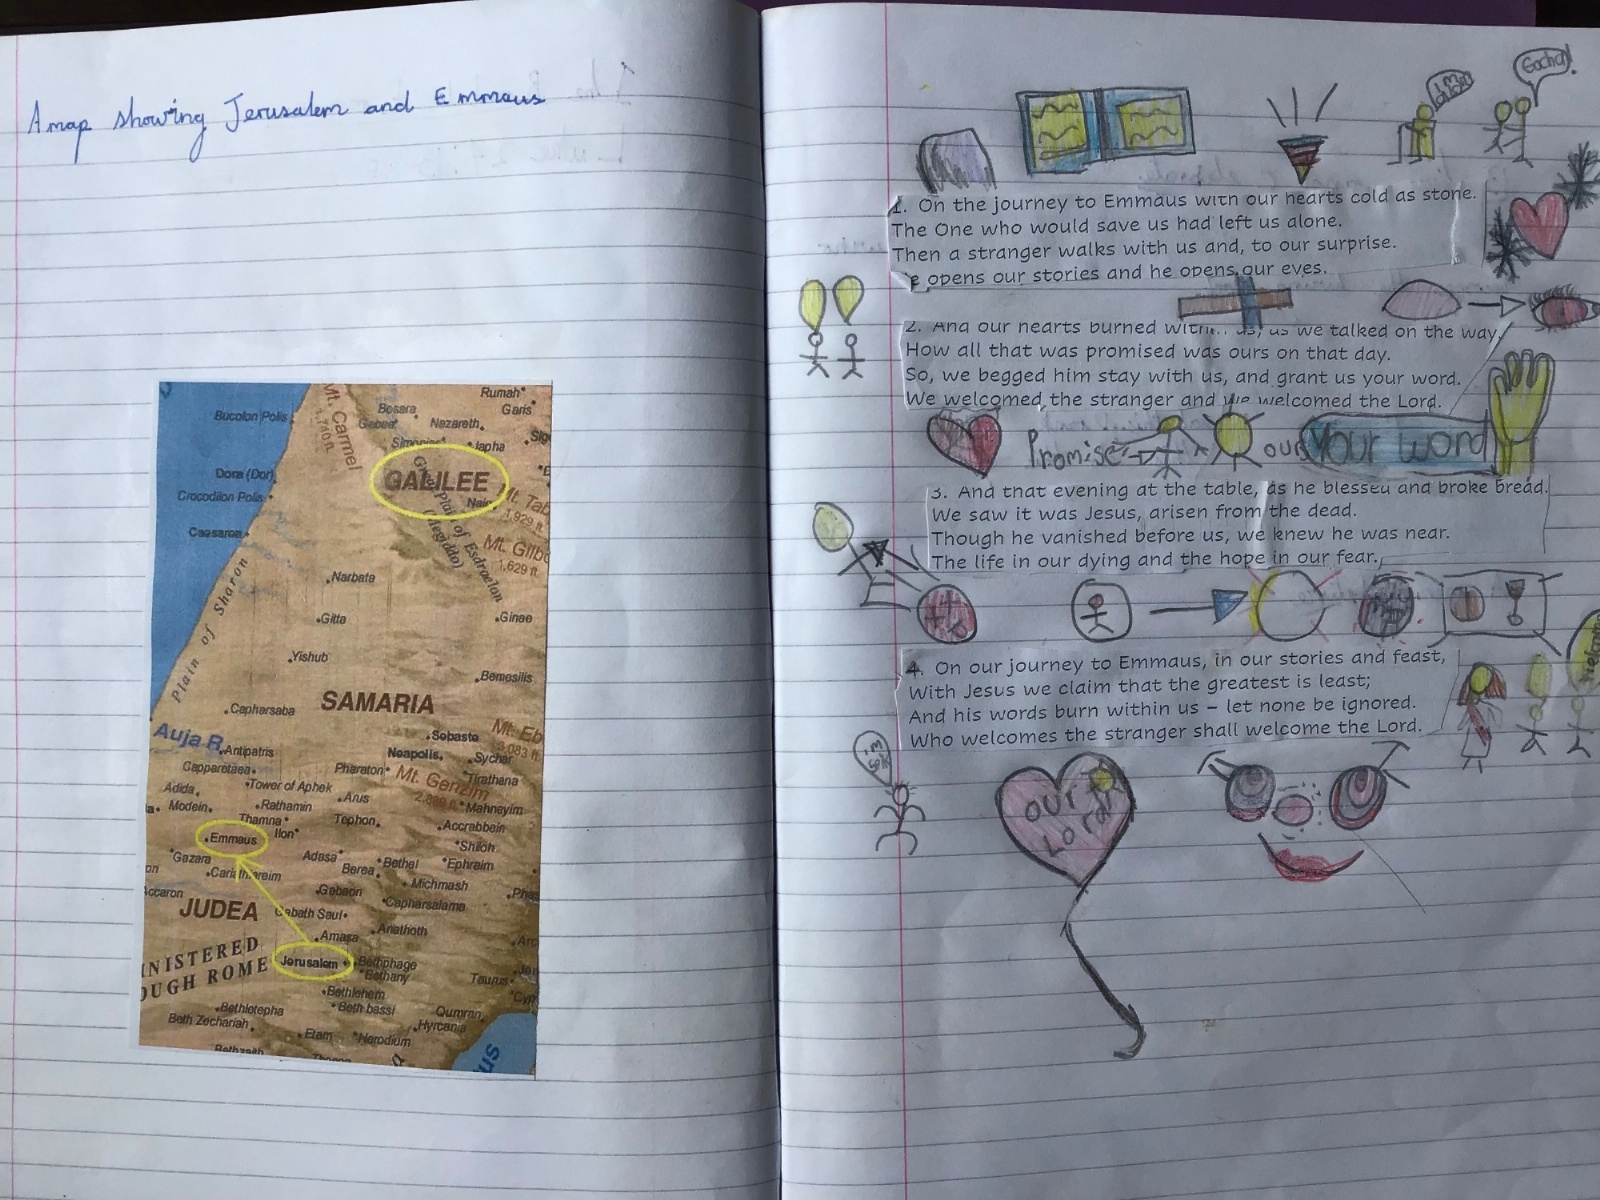 A map showing Jerusalem and Emmaus
Rumah
Garis
Bucolon Polis
Mt. Carmel
1,740 ft.
Bosara
Gabae
Nazareth
Simonias
Japha
GALILEE
Great Plain of Esdraelon
(Megiddo)
Nain
1,929 ft.
Dora (Dor)
Crocodilon Polis
Caesarea
1,629 ft.
Narbata
Plain of Sharon
Gitta
Ginae
Yishub
Bemesilis
SAMARIA
Capharsaba
Sebaste
Auja R.
Antipatris
Neapolis
Sychar
Capparetaea
Pharaton
Mt. Gerizim
Tirathana
Adida
Tower of Aphek
Arus
Mahnayim
Modein
Rathamin
Thamna
Tephon
Accrabbein
Emmaus
Ilon
Shiloh
Gazara
Adasa
Bethel
Ephraim
Berea
Cariathiareim
Michmash
Accaron
Gabaon
Capharsalama
JUDEA
Gabath Saul
Amasa
Anathoth
Jerusalem
Bethphage
Bethany
INISTERED
OUGH ROME
Taurus
Bethlehem
Bethletepha
Beth bassi
Qumran
Beth Zechariah
Hyrcania
Etam
Herodium
Gotcha!
1. On the journey to Emmaus with our hearts cold as stone.
The One who would save us had left us alone.
Then a stranger walks with us and, to our surprise.
opens our stories and he opens our eyes.
2. And our hearts burned within us, as we talked on the way,
How all that was promised was ours on that day.
So, we begged him stay with us, and grant us your word.
We welcomed the stranger and we welcomed the Lord.
Promise
ours
Your word
3. And that evening at the table, as he blessed and broke bread.
We saw it was Jesus, arisen from the dead.
Though he vanished before us, we knew he was near.
The life in our dying and the hope in our fear.
4. On our journey to Emmaus, in our stories and feast,
With Jesus we claim that the greatest is least;
And his words burn within us – let none be ignored.
Who welcomes the stranger shall welcome the Lord.
Welcome
I'm
our
Lord